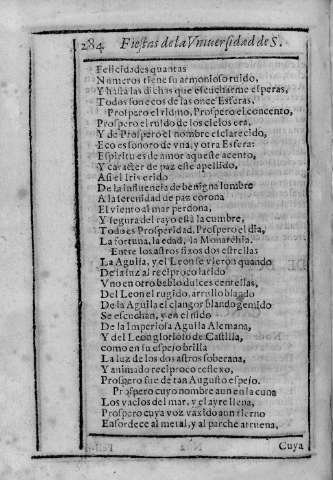 284 Fiestas de la Vniuersidad de S.
Felicidades quantas
Numeros tiene su armonioso ruido,
Y hasta las dichas que escucharme esperas,
Todos son ecos de las once Esferas,
Prospero el ritmo, Prospero el concento,
Prospero el ruido de los cielos era,
Y de Prospero el nombre esclarecido,
Eco es sonoro de vna, y otra Esfera:
Espiritu es de amor aqueste acento,
Y caracter de paz este apellido,
Asi el Iris erido
De la influencia de benigna lumbre
A la serenidad de paz corona
El viento al mar perdona,
Y segura del rayo está la cumbre,
Todo es Prosperidad, Prospero el dia,
La fortuna, la edad, la Monarchia.
Entre los astros fixos dos estrellas
La Aguila, y el Leon se vieron quando
De la luz al reciproco latido
Vno en otro bebio dulces centellas,
Del Leon el rugido, arrullo blando
De la Aguila el clangor blando gemido
Se escuchan, y en el nido
De la Imperiosa Aguila Alemana,
Y del Leon glorioso de Castilla,
como en su espejo brilla
La luz de los dos astros soberana,
Y animado reciproco reflexo,
Prospero fue de tan Augusto espejo.
Prospero cuyo nombre aun en la cuna
Los vacios del mar, y el ayre llena,
Prospero cuya voz vaxido aun tierno
Ensordece al metal, y al parche atruena,
Cuya